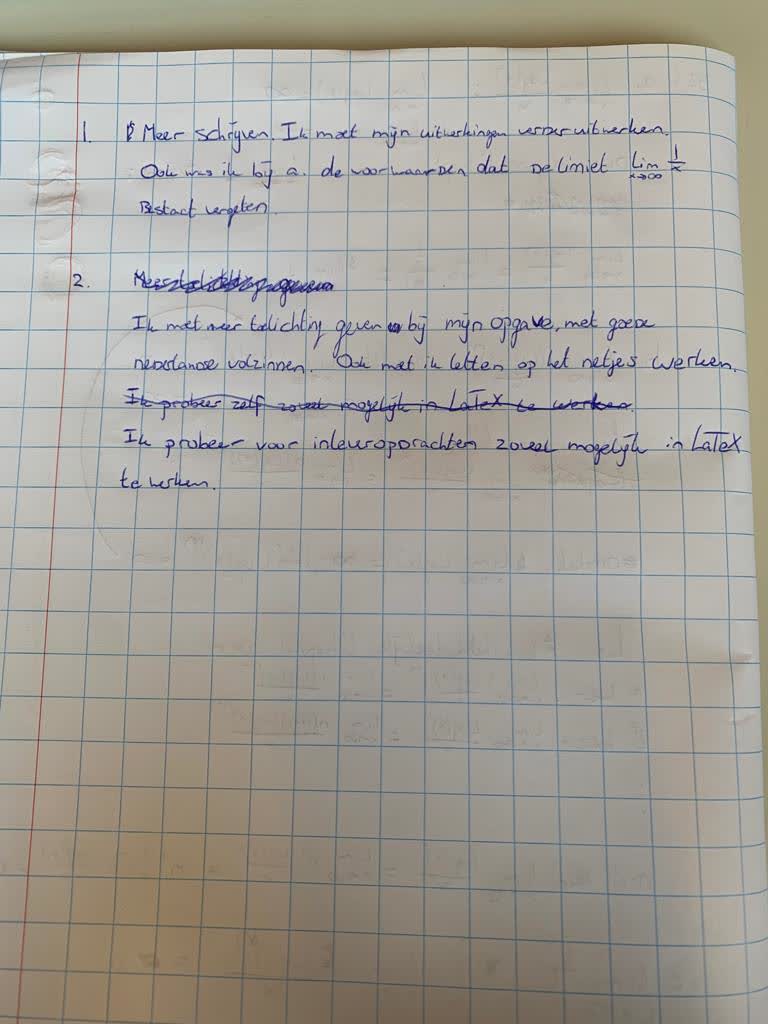 1. Meer schrijven. Ik moet mijn uitwerkingen verder uitwerken.
Ook was ik bij a. de voorwaarden dat de limiet lim x→∞ 1/x
Bestaat vergeten.
2.
Ik moet meer toelichting geven bij mijn opgave, met goede
nederlandse volzinnen. Ook moet ik letten op het netjes werken.
Ik probeer zelf zoveel mogelijk in LaTeX te werken.
Ik probeer voor inleveropdrachten zoveel mogelijk in LaTeX
te werken.